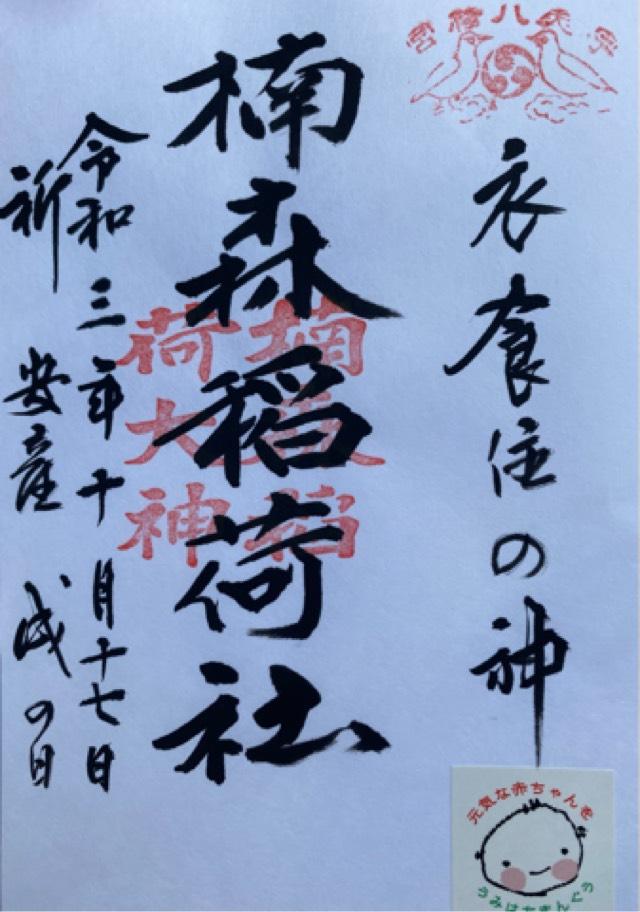 宇美八幡宮
衣食住の神
楠森稲荷社
楠森稲
荷大神
令和三年十月十七日
祈 安産 戌の日
元気な赤ちゃんを
うみはちまんぐう